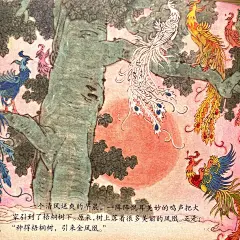 一个清风送爽的早晨，一阵阵悦耳美妙的鸣声把大
家引到了梧桐树下。原来，树上落着很多美丽的凤凰。正是：
“种得梧桐树，引来金凤凰。”